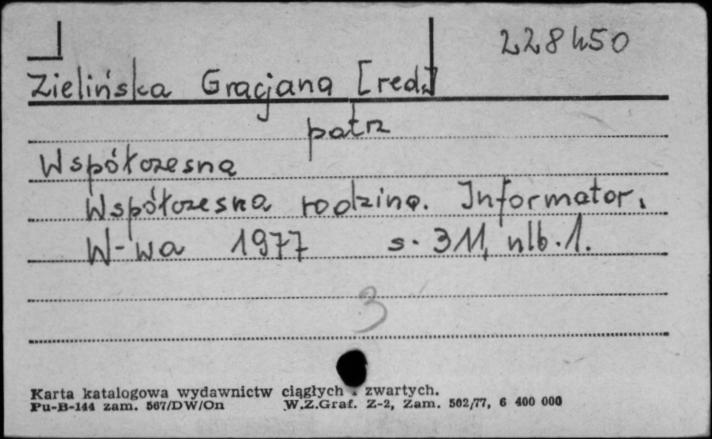 228450
Zielińska Gracjana [red.]
patrz
Współczesna
Współczesna rodzina. Informator.
W-wa 1977 s. 311, nlb. 1.
3
Karta katalogowa wydawnictw ciągłych i zwartych.
Pu-B-144 zam. 567/DW/On W.Z.Graf. Z-2, Zam. 502/77, 6 400 000